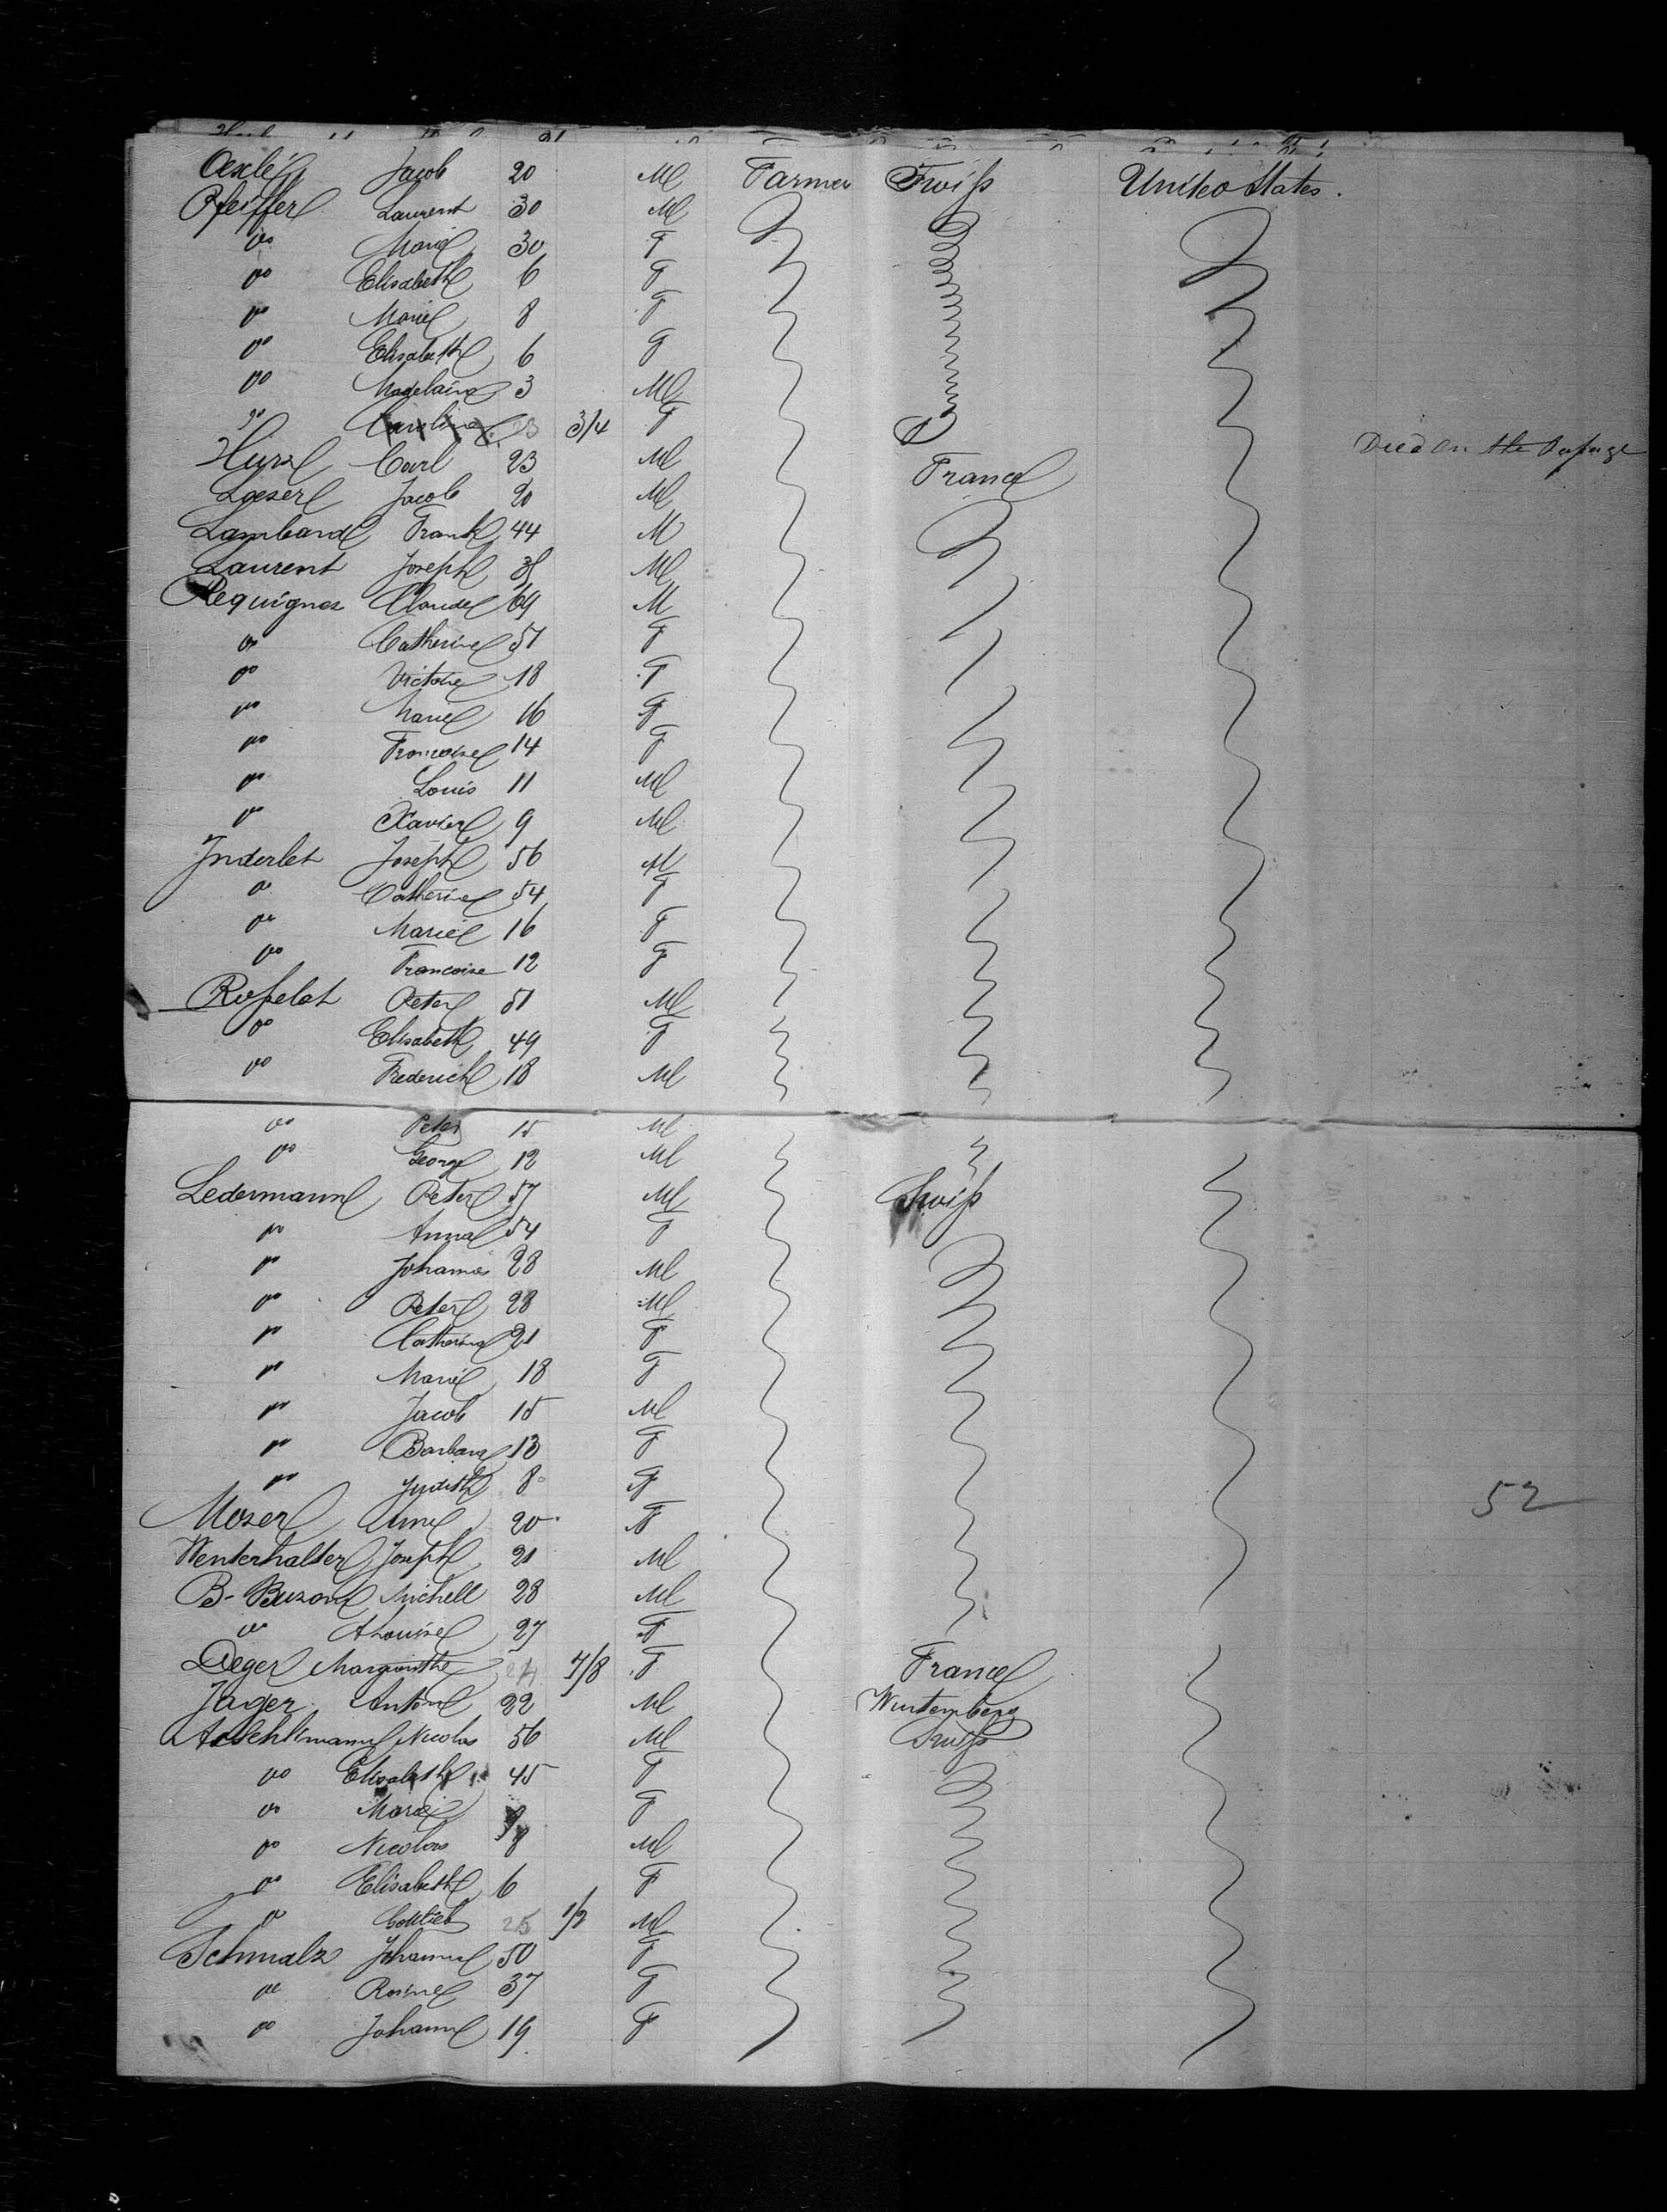 Oexlé Jacob 20 M Farmer Swiss United States.
Pfeiffer Laurent 30 M
do Marie 30 F
do Elisabeth 6 F
do Marie 8 F
do Elisabeth 6 F
do Madelaine 3 M
do Caroline 3/4 F
Hurz Carl 23 M France Died on the Passage
Loeser Jacob 20 M
Lambard Frank 44 M
Laurent Joseph M
Requignot Claude 64 M
do Catherine 51 F
do Victoire 18 F
do Marie 16 F
do Francoise 14 F
do Louis 11 M
do Xavier 9 M
Inderlet Joseph 56 M
do Catherine 54 F
do Marie 16 F
do Francoise 12 F
Rosselet Peter 51 M
do Elisabeth 49 F
do Frederich 18 M
do Peter 15 M
do George 12 M
Ledermann Peter 57 M Swiss
do Anna 54 F
do Johannes 28 M
do Peter 28 M
do Catherine 21 F
do Marie 18 F
do Jacob 15 M
do Barbara 13 F
do Judith 8 F
52
Moser Anne 20 F
Wenterhalter Joseph 21 M
B-Buzon Michell 28 M
do A Louise 27 F
Deger Margarithe 24 7/8 F France
Jager Anton 22 M Wurtemberg
Aeschlimann Nicolas 56 M Swiss
do Elisabeth 45 F
do Marie F
do Nicolas 8 M
do Elisabeth 6 F
do Gottlieb 25 1/2 M
Schmalz Johann 50 F
do Rosine 37 F
do Johann 19 F